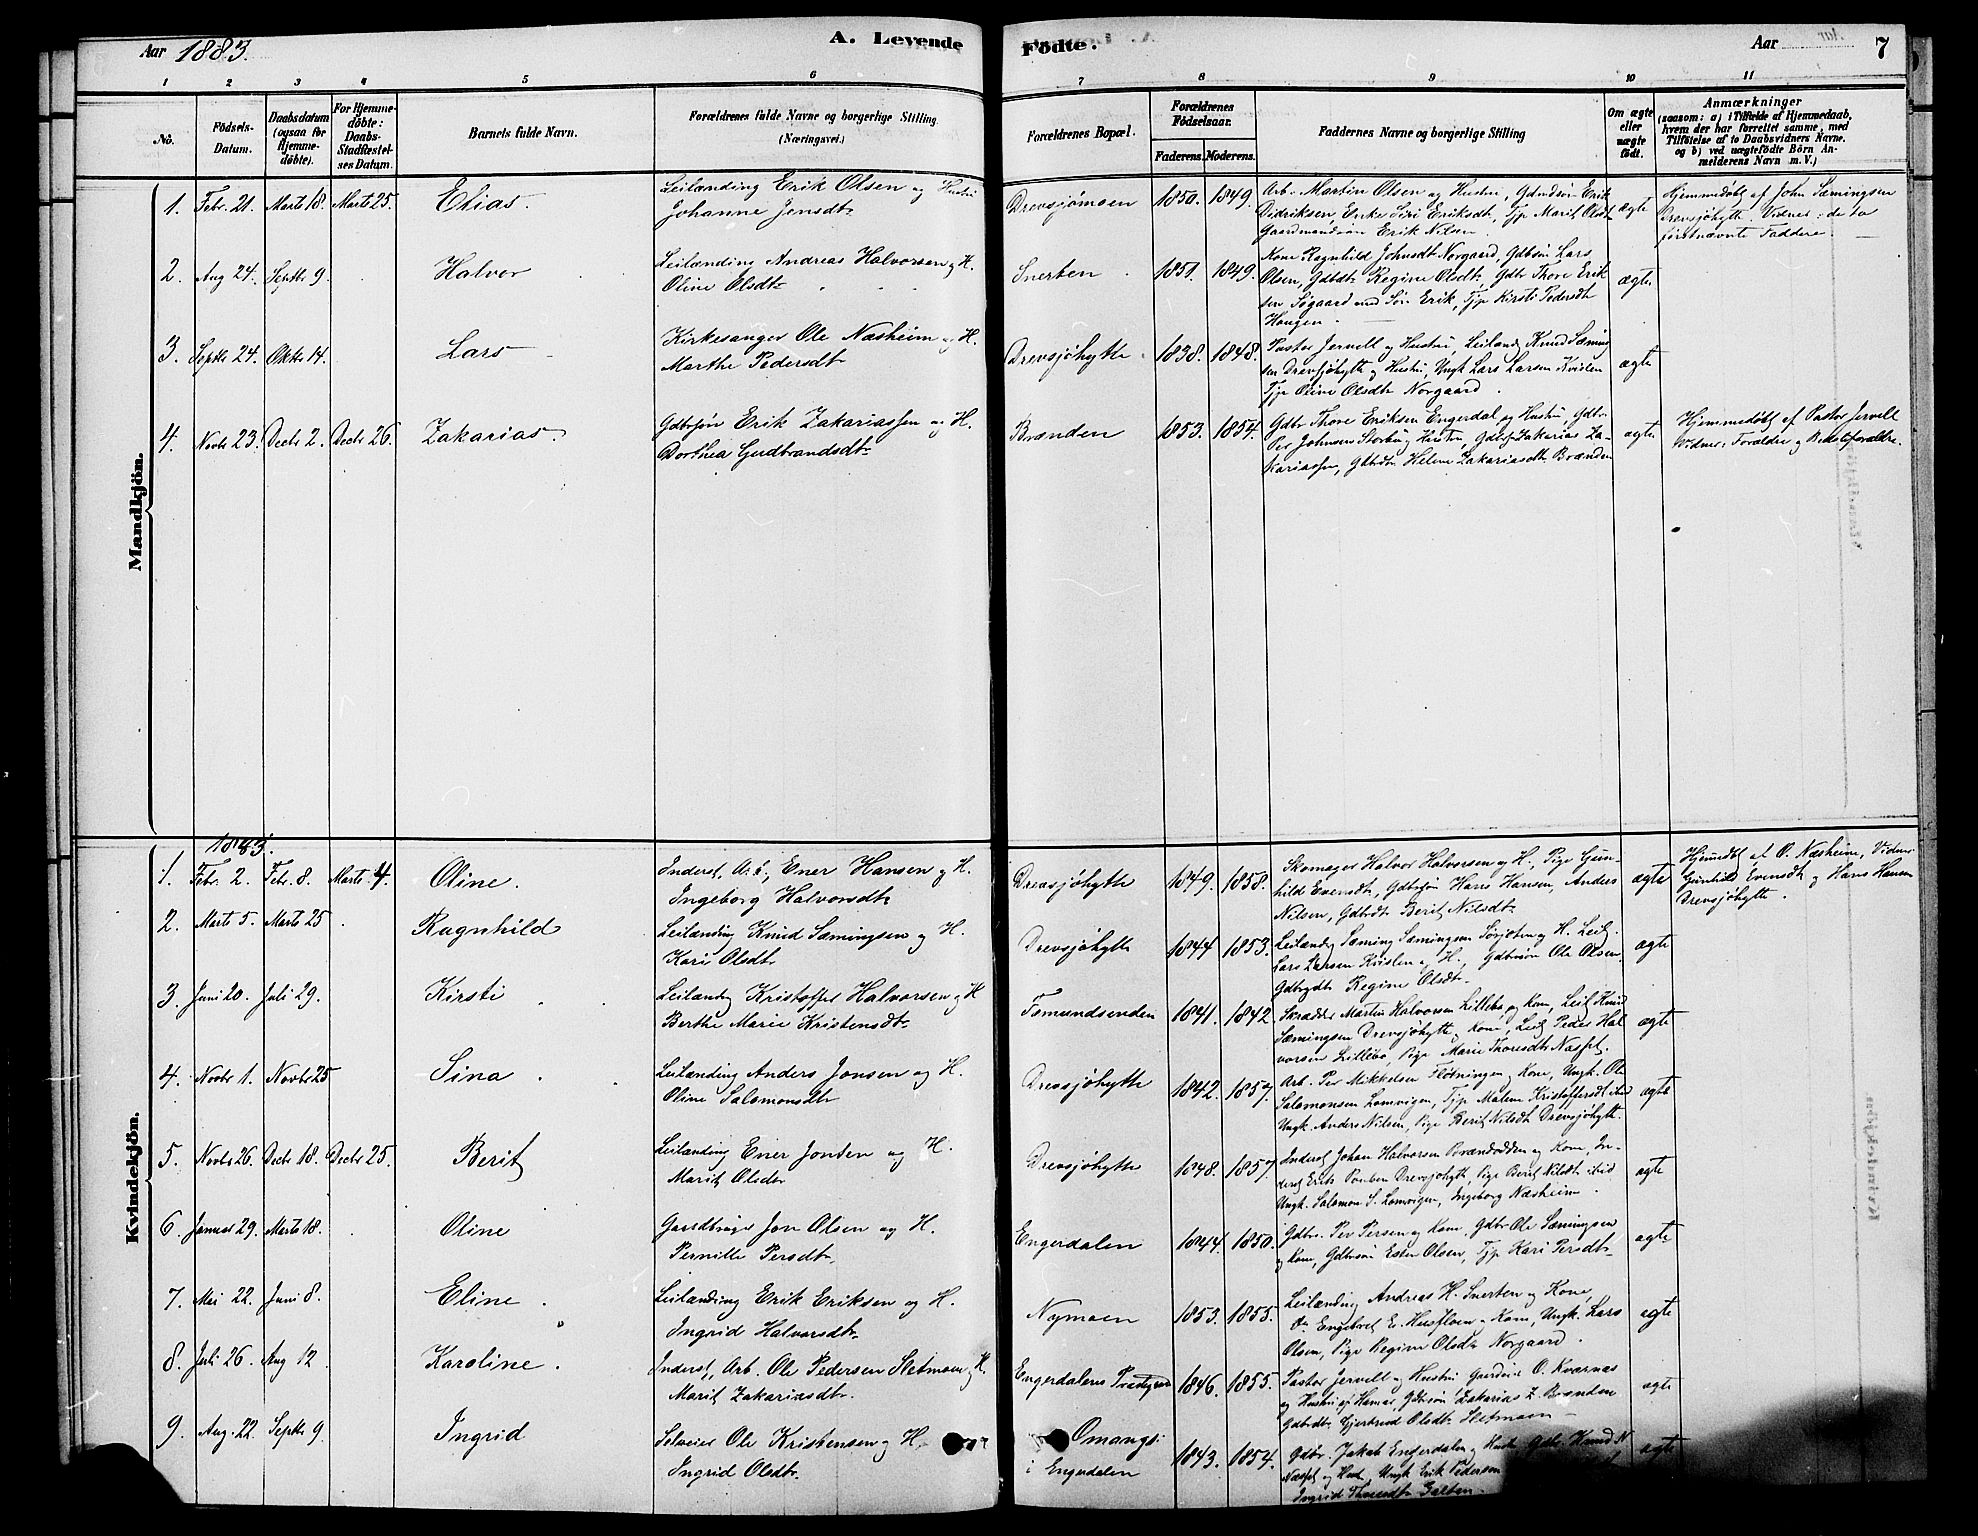 Aar 1883.
A. Levende
Födte.
Aar
7
1 2 3 4 5 6 7 8 9 10 11
No.
Födsels-
Datum.
Daabsdatum
(ogsaa for
Hjemme-
döbte).
For Hjemme-
döbte:
Daabs-
Stadfæstel-
ses Datum.
Barnets fulde Navn.
Forældrenes fulde Navne og borgerlige Stilling
(Næringsvei.)
Forældrenes Bopæl.
Forældrenes
Födselsaar.
Faderens. Moderens.
Faddernes Navne og borgerlige Stilling
Om ægte
eller
uægte
födt.
Anmærkninger
(saasom: a) i Tilfælde af Hjemmedaab,
hvem der har forrettet samme, med
Tilföielse af to Daabsvidners Navne.
og b) ved uægtefödte Börn An-
melderens Navn m. V.)
Mandkjön.
1. Febr. 21. Marts 18. Marts 25. Elias.
Leilænding Erik Olsen og Hustru
Johanne Jensdtr
Drevsjømoen 1850. 1849.
Arb. Martin Olsen og Hustru, Gdmdsön Erik
Didriksen, Enke Siri Eriksdt, Tjp Marit Olsdt
Gaardmandssön Erik Nilsen
ægte
Hjemmedøbt af John Sæmingsen
Drevsjöhytte Vidner: de to
førstnævnte Faddere.
2. Aug 24. Septbr 9. Halvor
Leilænding Andreas Halvorsen og H.
Oline Olsdtr
Snerten 1851. 1849.
Kone Ragnhild Johnsdt Norgaard, Gdbsön Lars
Olsen, Gdbdt Regine Olsdt, Gdbr Thore Erik
sen Sögaard med Sön Erik, Tjp Kirsti Pedersdt
Haugen
ægte
3. Septbr 24. Oktbr 14. Lars
Kirkesanger Ole Næsheim og H.
Marthe Pedersdtr
Drevsjöhytte 1838. 1848.
Pastor Jervell og Hustru, Leilænd Knud Sæming
sen Drevsjöhytte og Hustru, Ungk Lars Larsen Kvislen
Tjp Oline Olsdtr Norgaard.
ægte
4. Novbr 23. Decbr 2. Decbr 26. Zakarias.
Gdbrsön Erik Zakariassen og H.
Dorthea Gudbrandsdtr
Brænden 1853. 1854.
Gdbr Thore Eriksen Engerdal og Hustru, Gdbr
Per Johnsen Storbu og Hustru, Gdbrs Zakarias Za-
kariassen, Gdbrdtr Helene Zakariasdt Brænden
ægte
Hjemmedøbt af Pastor Jervell
Vidner: Forældre og Bedsteforældre.
Kvindekjön.
1883.
1. Febr. 2. Febr. 8. Marts 4. Oline.
Inderst, Arb., Ener Hansen og H.
Ingeborg Halvorsdtr
Drevsjöhytte 1849. 1858.
Skomager Halvor Halvorsen og H., Pige Gun-
hild Evensdt, Gdbrsön Hans Hansen, Anders
Nilsen, Gdbrdt Berit Nilsdtr
ægte
Hjemdbt af O. Næsheim, Vidner
Gunhild Evensdt og Hans Hansen
Drevsjöhytte.
2. Marts 5. Marts 25 Ragnhild
Leilænding Knud Sæmingsen og H.
Kari Olsdtr
Drevsjöhytte 1844 1853.
Leilænding Sæming Sæmingsen Sörjoten og H. Leil.
Lars Larsen Kvislen og H., Gdbrsön Ole Olsen
Gdbrdt Regine Olsdtr
ægte
3. Juni 20. Juli 29. Kirsti
Leilænding Kristoffer Halvorsen og H
Berthe Marie Kristensdtr
Femundsenden 1841. 1842
Skrædder Martin Halvorsen Lillebo og Kone, Leil Knud
Sæmingsen Drevsjöhytte og Kone, Leil Peder Hal
vorsen Lillebo, Pige Marie Thoresdtr Næsset.
ægte
4. Novbr 1. Novbr 25 Sina
Leilænding Anders Jonsen og H.
Oline Salomonsdtr
Drevsjöhytte 1842. 1857.
Arb. Per Mikkelsen Flötningen og Kone, Ungk. Ole
Salomonsen Lomvigen, Tjp Malene Kristoffersdt ibid
Ungk. Anders Nilsen, Pige Berit Nilsdt Drevsjöhytte.
ægte
5. Novbr 26. Decbr 18. Decbr 25. Berit
Leilænding Ener Jonsen og H.
Marit Olsdtr
Drevsjöhytte 1848. 1857.
Inderst Johan Halvorsen Brændodden og Kone, In-
derst Erik Poulsen Drevsjöhytte, Pige Berit Nilsdt ibid
Ungk. Salomon S. Lomvigen, Ingeborg Næsheim.
ægte
6. Januar 29. Marts 18. Oline
Gaardbruger Jon Olsen og H.
Pernille Persdtr.
Engerdalen 1844. 1850.
Gdbr. Per Persen og Kone, Gdbr Ole Sæmingsen
og Kone, Gdbrsön Esten Olsen, Tjp Kari Persdtr
ægte
7. Mai 22. Juni 8. Eline
Leilænding Erik Eriksen og H.
Ingrid Halvorsdtr
Nymoen 1853. 1855.
Leilænding Andreas H. Snerten og Kone,
Engebret E. Husfloen og Kone, Ungk. Lars
Olsen, Pige Regine Olsdtr Norgaard.
ægte
8. Juli 26. Aug 12 Karoline.
Inderst, Arb. Ole Pedersen Sletmoen og H.
Marit Zakariasdtr.
Engerdalens 1846. 1855.
Pastor Jervell og Hustru O. Kvarnæs
og Hustru af Hamar, Gdbrsön Zakarias Z. Brænden
Gdbrdtr Gjertrud Olsdtr Sletmoen
ægte
9. Aug. 22. Septbr 9. Ingrid
Selveier Ole Kristensen og H.
Ingrid Olsdtr.
Omangs
i Engerdalen 1843. 1854.
Gdbr. Jakob Engerdalen og Hustr. Gdbr. Knud N
Næsset og Hust, Ungk Erik Pedersen
Ingrid Thoresdtr Galten.
ægte